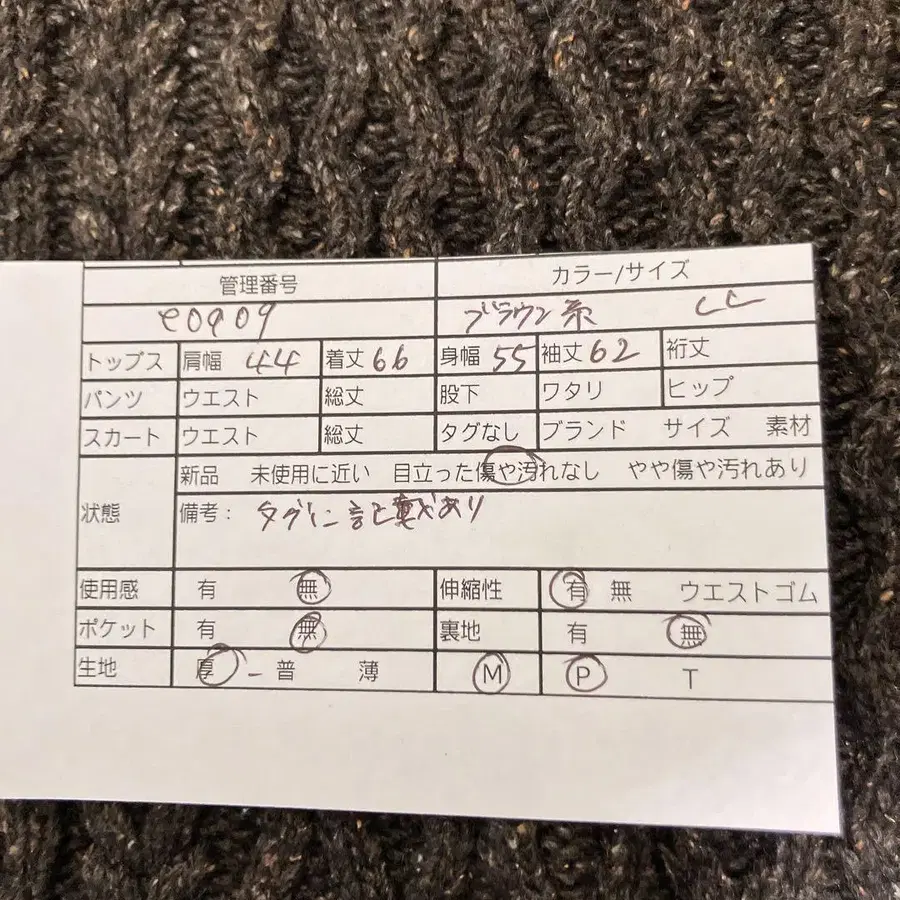 管理番号 カラー/サイズ
e0909 ブラウン系 LL
トップス 肩幅 44 着丈 66 身幅 55 袖丈 62 裄丈
パンツ ウエスト 総丈 股下 ワタリ ヒップ
スカート ウエスト 総丈 タグなし ブランド サイズ 素材
状態 新品 未使用に近い 目立った傷や汚れなし やや傷や汚れあり
備考: タグに記載あり
使用感 有 無 伸縮性 有 無 ウエストゴム
ポケット 有 無 裏地 有 無
生地 厚 - 普 薄 M P T